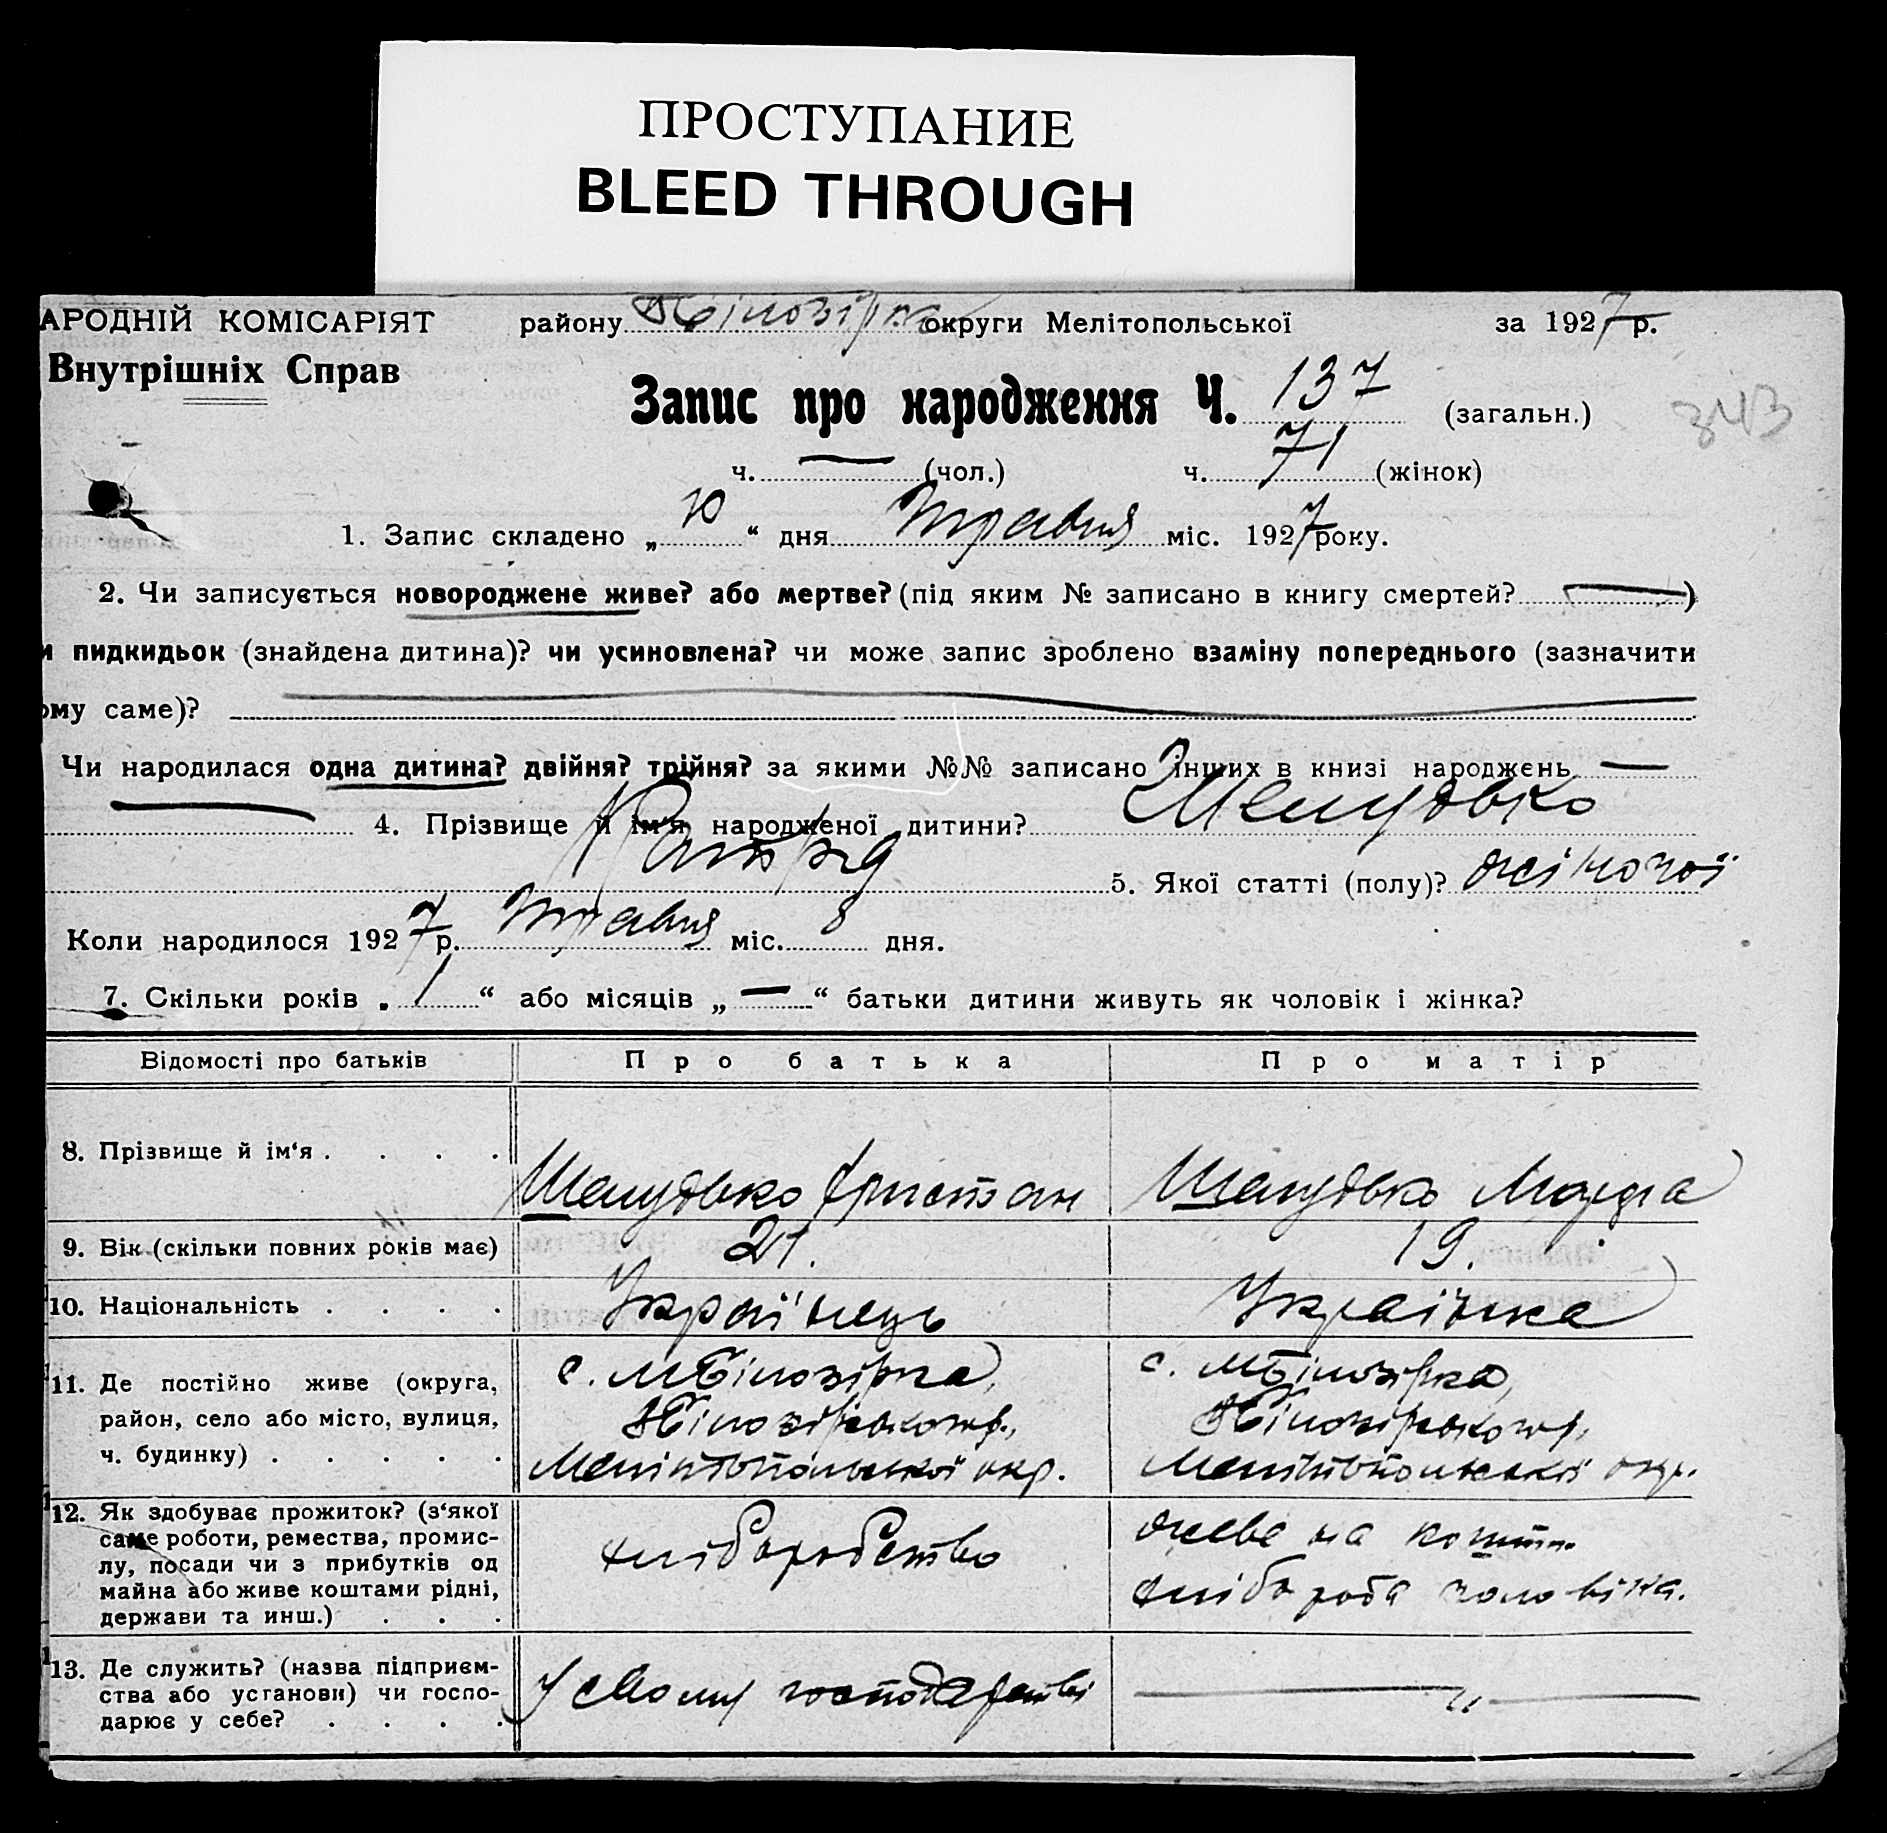 ПРОСТУПАНИЕ
BLEED THROUGH
АРОДНІЙ КОМІСАРІЯТ району округи Мелітопольської за 1927 р.
Внутрішніх Справ
Запис про народження Ч. 137 (загальн.) 343
ч. — (чол.) ч. 71 (жінок)
1. Запис складено „ 10 “ дня Травня міс. 1927 року.
2. Чи записується новороджене живе? або мертве? (під яким № записано в книгу смертей? — )
и пидкидьок (знайдена дитина)? чи усиновлена? чи може запис зроблено взаміну попереднього (зазначити
ому саме)?
Чи народилася одна дитина? двійня? трійня? за якими №№ записано інших в книзі народжень —
— 4. Прізвище й ім'я народженої дитини? Шелудько
5. Якої статті (полу)? жіночої
Коли народилося 1927 р. Травня міс. 8 дня.
7. Скільки років „ 1 “ або місяців „ — “ батьки дитини живуть як чоловік і жінка?
Відомості про батьків Про батька Про матір
8. Прізвище й ім'я . . . . Шелудько Шелудько
9. Вік (скільки повних років має) 21. 19.
10. Національність . . . . Українець Українка
11. Де постійно живе (округа, с. МБілозірка, с. МБілозірка,
район, село або місто, вулиця,
ч. будинку) . . . . . Мелітопольської окр. Мелітопольської окр.
12. Як здобуває прожиток? (з'якої
саме роботи, ремества, промис- хліборобство живе на кошти
лу, посади чи з прибутків од
майна або живе коштами рідні, хлібороба чоловіка.
держави та инш.) . . .
13. Де служить? (назва підприєм-
ства або установи) чи госпо- У свому господарстві — „ —
дарює у себе? . . . .